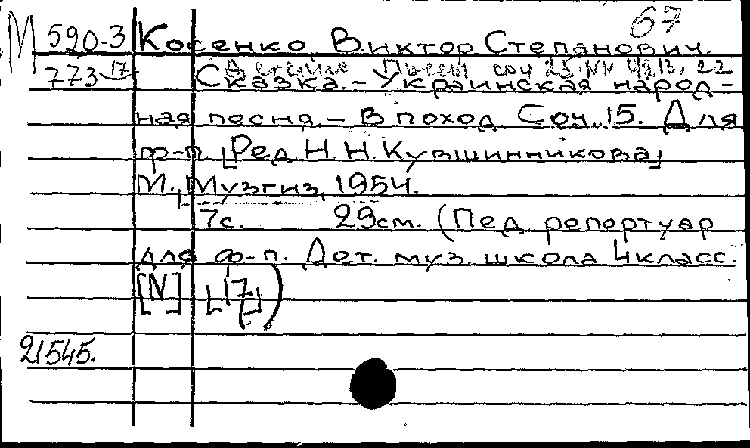 67
М 590-3 Косенко Виктор Степанович.
773 17 Детские Пьесы соч 25. №№ 22
Сказка. – Украинская народ-
ная песня. – В поход. Соч. 15. Для
ф-п. [Ред. Н. Н. Кувшинникова]
М., Музгиз, 1954.
7с. 29см. (Пед. репертуар
для ф-п. Дет. муз. школа 4 класс.
[N] [17])
21545.